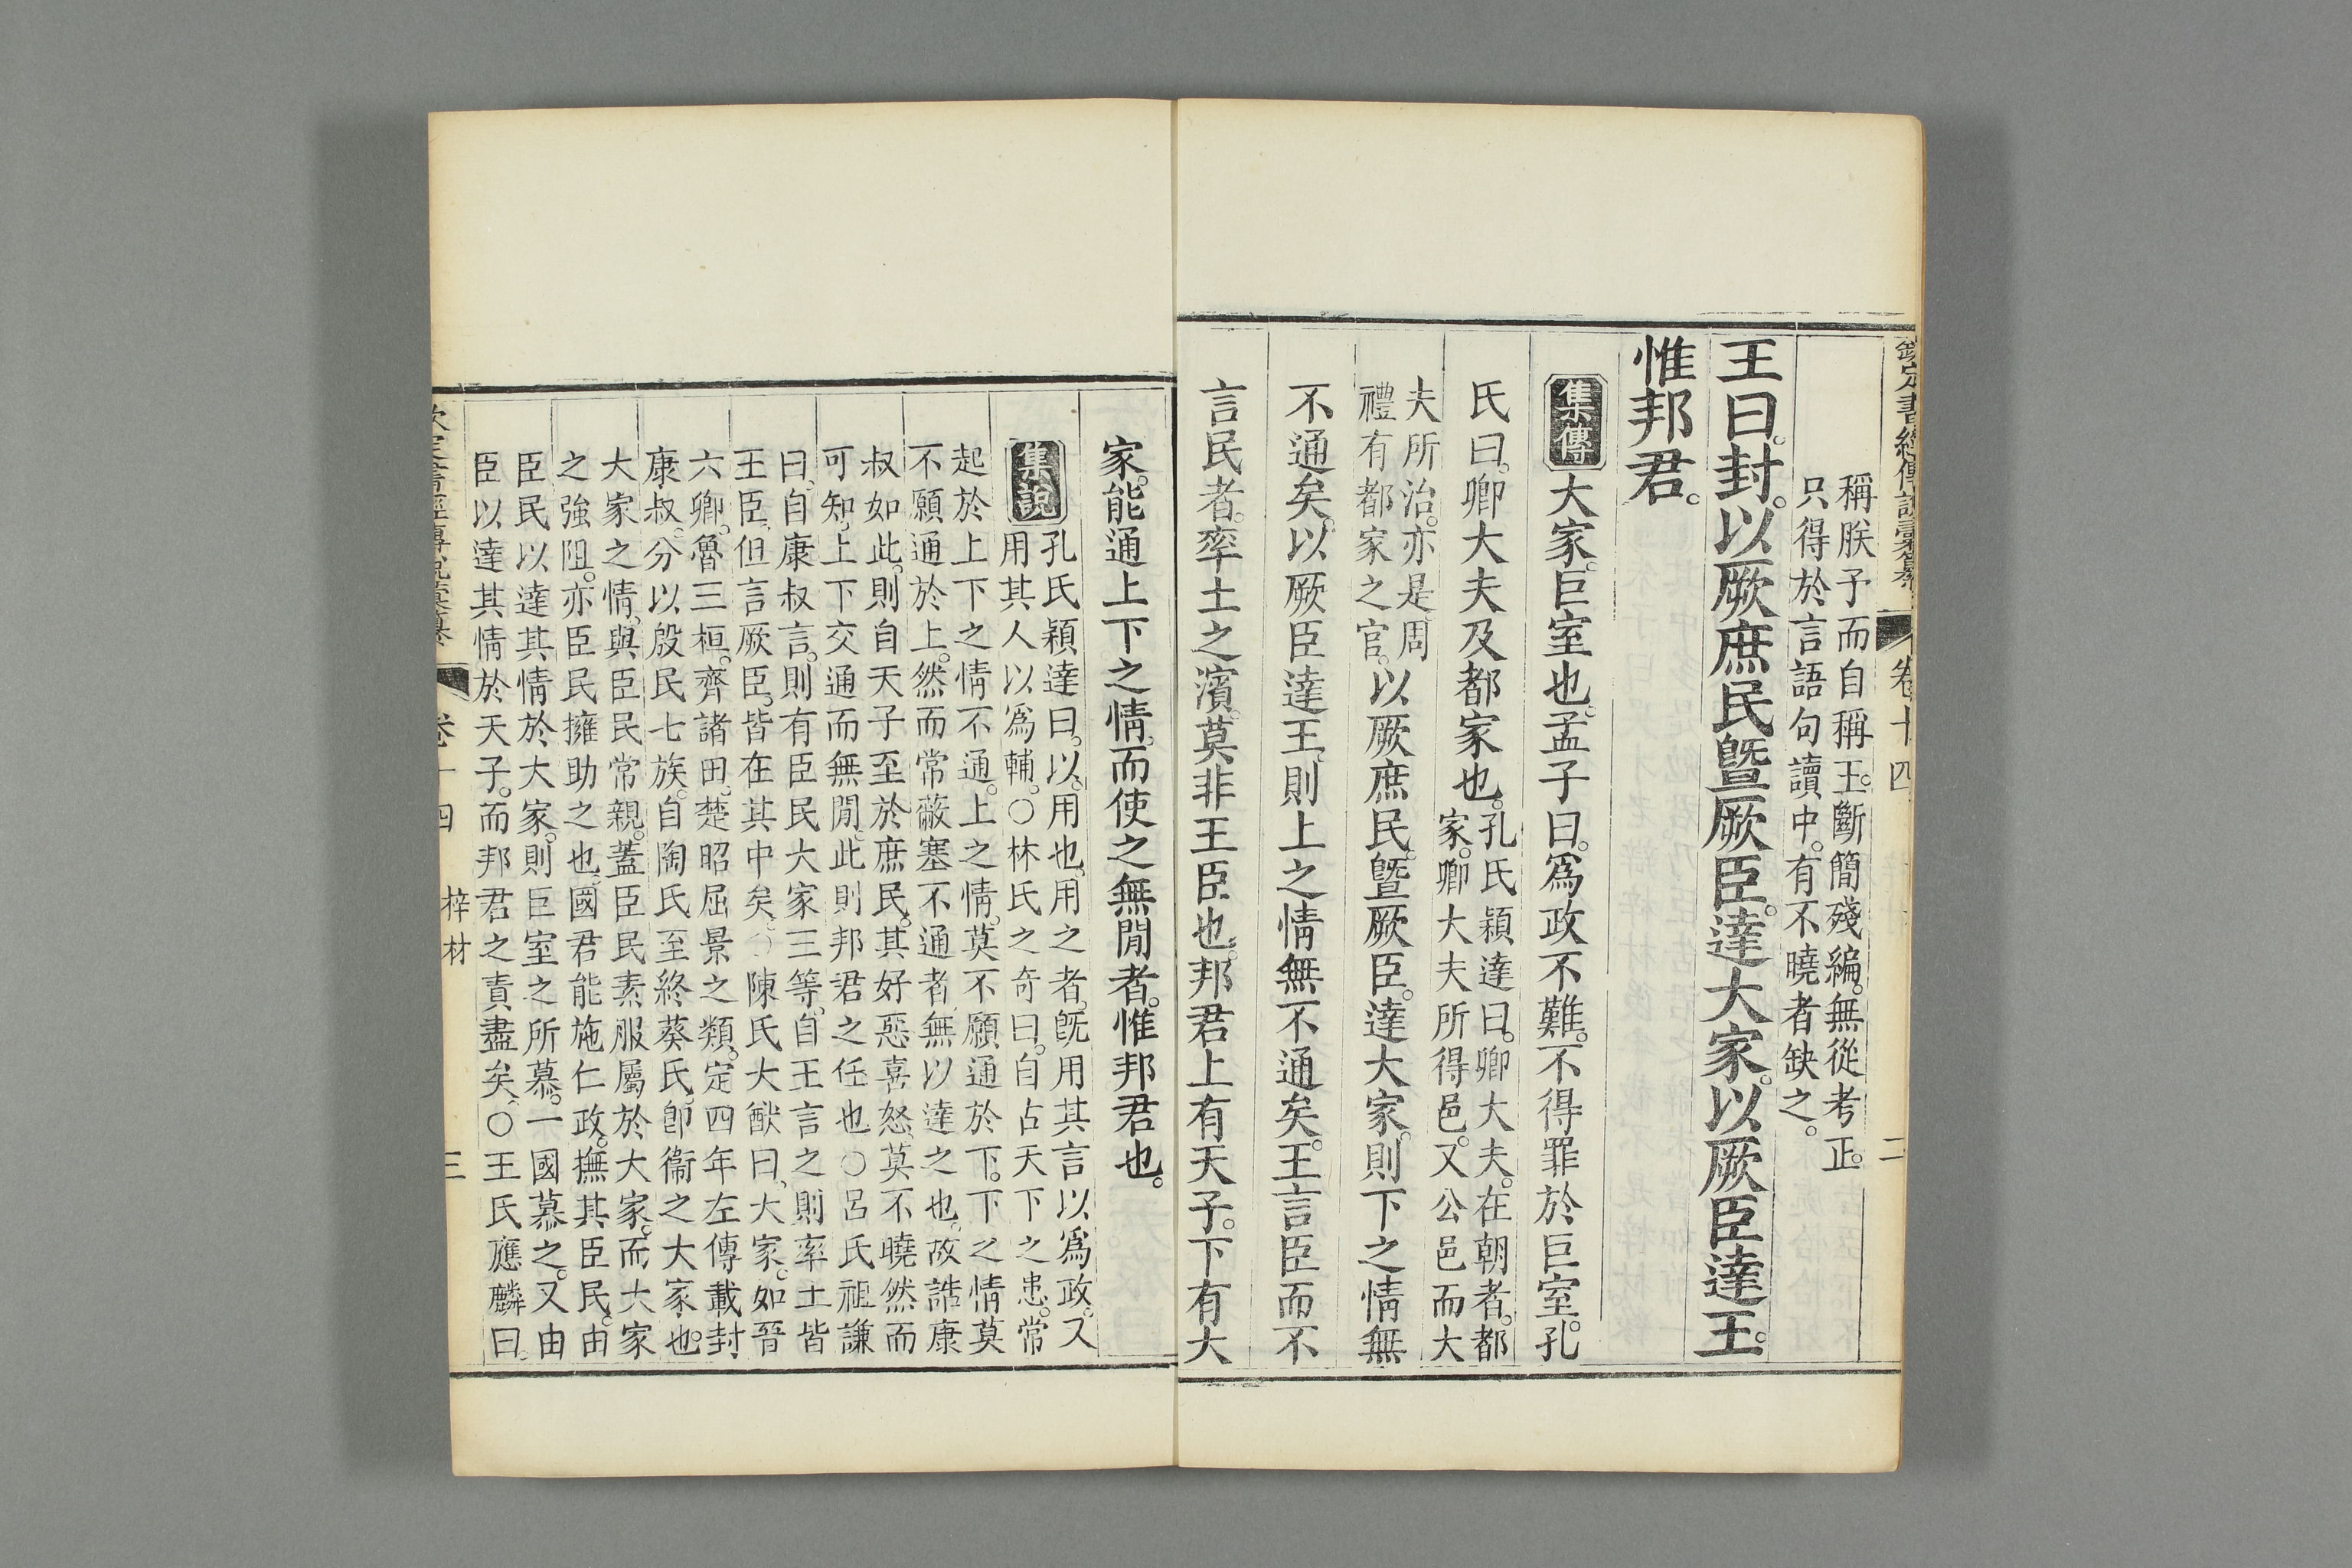 欽定書經傳說彙纂 卷十四 二
稱朕予而自稱王。斷簡殘編。無從考正。
只得於言語句讀中。有不曉者缺之。
王曰。封。以厥庶民暨厥臣。達大家。以厥臣達王。
惟邦君。
集傳 大家。巨室也。孟子曰。爲政不難。不得罪於巨室。孔
氏曰。卿大夫及都家也。孔氏穎達曰。卿大夫。在朝者。都
家。卿大夫所得邑。又公邑而大
夫所治。亦是周
禮有都家之官。以厥庶民。暨厥臣。達大家。則下之情無
不通矣。以厥臣達王。則上之情無不通矣。王言臣而不
言民者。率土之濱。莫非王臣也。邦君上有天子。下有大
家。能通上下之情。而使之無閒者。惟邦君也。
集說 孔氏穎達曰。以。用也。用之者。旣用其言以爲政。又
用其人以爲輔。○林氏之奇曰。自古天下之患。常
起於上下之情不通。上之情。莫不願通於下。下之情莫
不願通於上。然而常蔽塞不通者。無以達之也。故誥康
叔如此。則自天子至於庶民。其好惡喜怒。莫不曉然而
可知。上下交通而無閒。此則邦君之任也○呂氏祖謙
曰。自康叔言。則有臣民大家三等。自王言之則率土皆
王臣。但言厥臣。皆在其中矣。○陳氏大猷曰。大家。如晉
六卿。魯三桓。齊諸田。楚昭屈景之類。定四年左傳載封
康叔。分以殷民七族。自陶氏至終葵氏。卽衞之大家也。
大家之情。與臣民常親。蓋臣民素服屬於大家。而大家
之強阻。亦臣民擁助之也。國君能施仁政。撫其臣民。由
臣民以達其情於大家。則巨室之所慕。一國慕之。又由
臣以達其情於天子。而邦君之責盡矣。○王氏應麟曰。
欽定書經傳說彙纂 卷十四 梓材 三